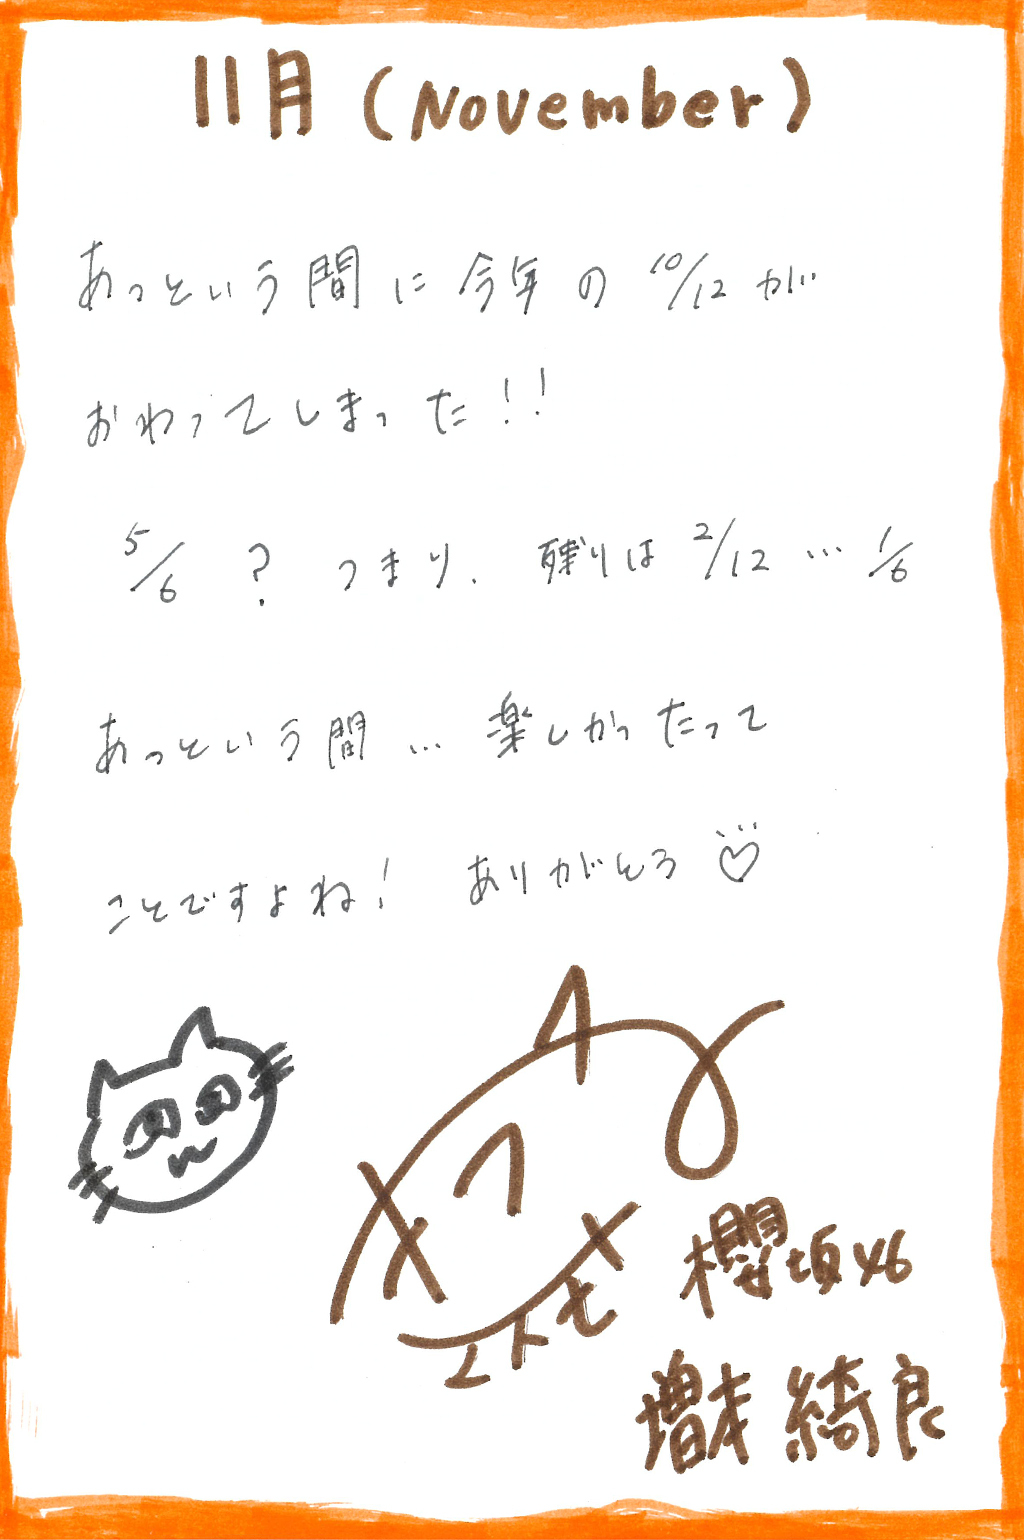 11月 (November)
あっという間に今年の 10/12 が
おわってしまった!!
5/6 ? つまり、残りは 2/12 … 1/6
あっという間 … 楽しかったって
ことですよね! ありがとう♡
櫻坂46
増本 綺良